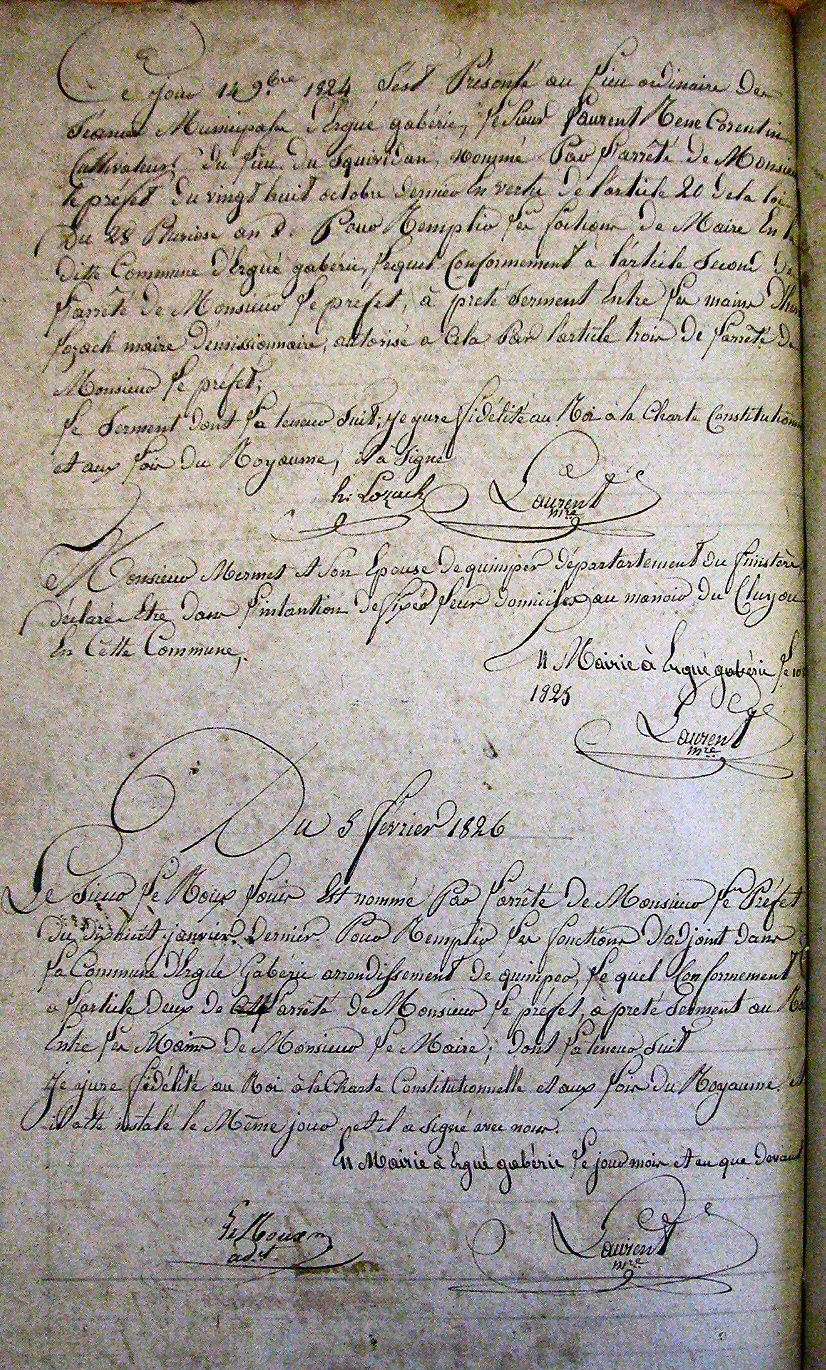 Ce jour 14 9.bre 1824 S'est Présenté au lieu ordinaire des
Séances Municipale d'Ergué gabéric, le Sieur Laurent Rene Corentin
Cultivateur du lieu du Squividan, nommé Par l'arrêté de Monsieur
le préfet du vingt huit octobre dernier En vertu de l'article 20 de la loi
Du 28 Pluviose an 8. Pour Remplir les foctions de Maire En la
ditte Commune d'Ergué gabéric, lequel Conformement a l'article Second de
l'arrêté de Monsieur le prefet, à preté Serment Entre les mains
Lozach maire démissionnaire, autorisé a cela Par l'article trois de l'arrêté de
Monsieur le préfet;
le Serment dont la teneur Suit; je jure fidélité au Roi à la Charte Constitutionn
et aux lois du Royaume, il a Signé
h. Lozach Laurent
mre
Monsieur Mermet et Son Epouse de quimper départartement du finistère,
déclaré Etre dans l'intantion de fixér leur domicile au manoir du Cluyou
En Cette Commune,.
En Mairie à Ergué gabéric le
1825
Laurent
mre
Du 5 février 1826
Le Sieur Le Roux Louis Est nommé Par l'arrêté de Monsieur le Préfet
du dixhuit janvier Dernier Pour Remplir les fonctions D'adjoint dans
la Commune d'Ergué Gaberic arrondissement de quimper, le quel Conformement
a l'article Deux de l'arrêté de Monsieur le préfet, à preté Serment au
Entre les Mains de Monsieur le Maire; dont la teneur Suit
Je jure fidélité au Roi à la Charte Constitutionnelle et aux lois du Royaume. et
il a été instalé le Même jour, et il a signé avec nous.
En Mairie à Ergué gabéric le jour mois et an que devant
Le Roux
adjt
Laurent
mre